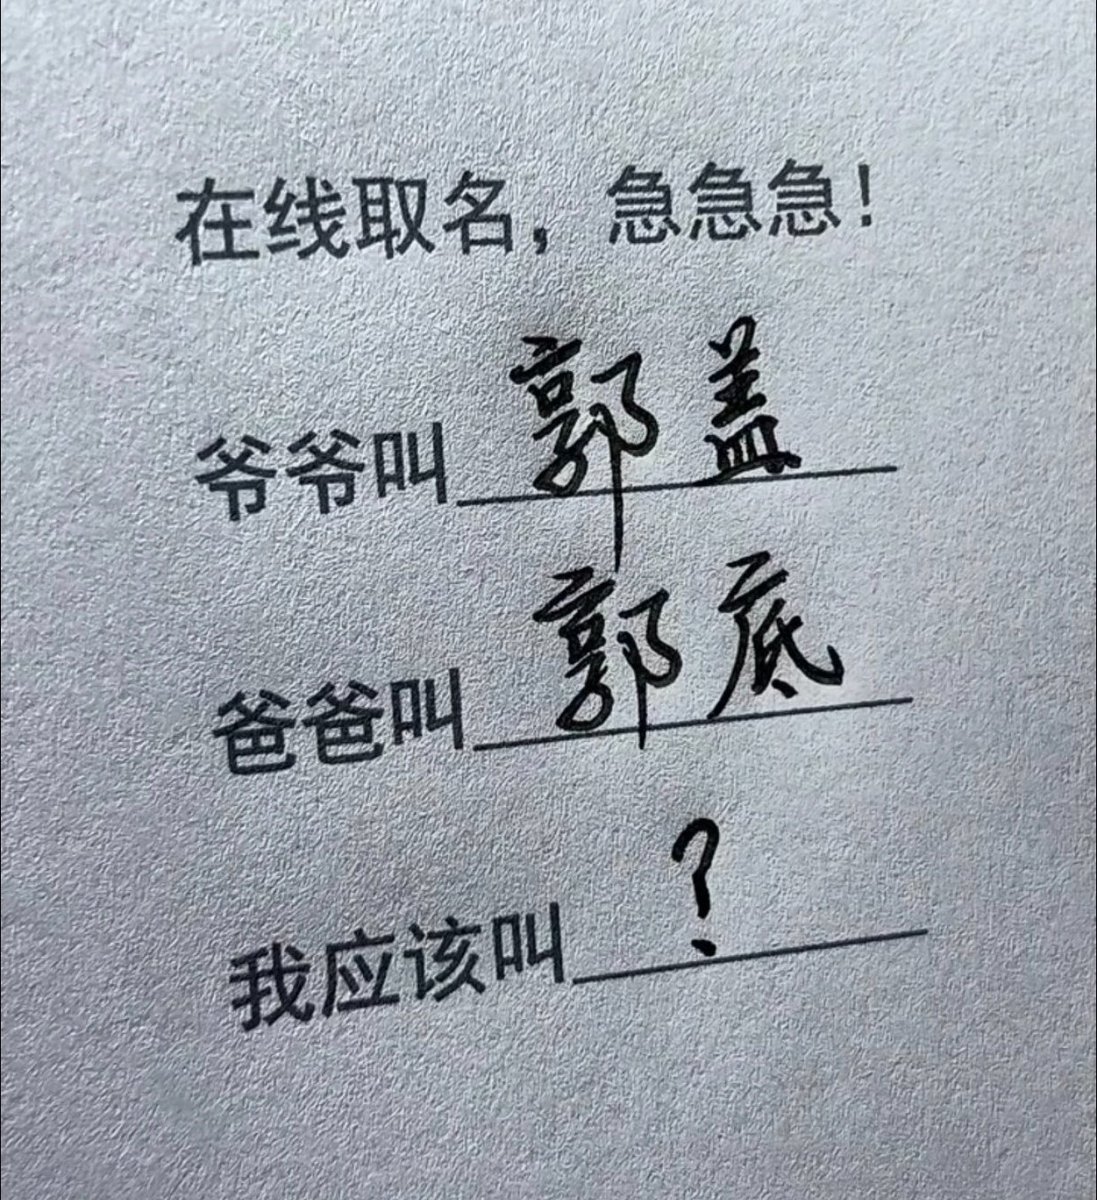 在线取名，急急急！
爷爷叫 郭盖
爸爸叫 郭底
我应该叫 ？